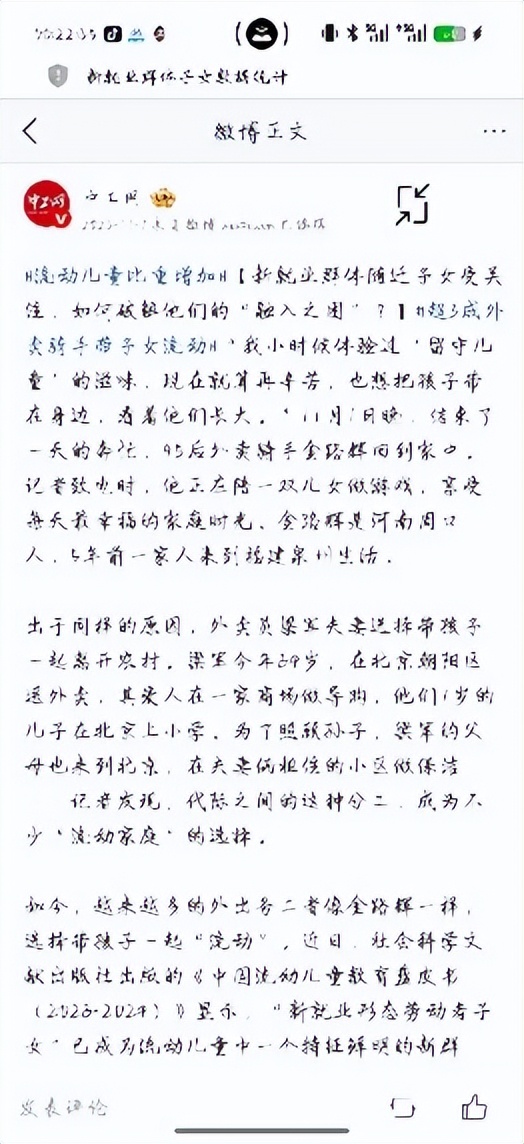 新就业群体子女数据统计
微博正文
中工网
中工网
#流动儿童比重增加#【新就业群体随迁子女受关
注，如何破解他们的“融入之困”？】#超3成外
卖骑手带子女流动#“我小时候体验过‘留守儿
童’的滋味，现在就算再辛苦，也想把孩子带
在身边，看着他们长大。”11月1日晚，结束了
一天的奔忙，95后外卖骑手金路辉回到家中。
记者致电时，他正在陪一双儿女做游戏，享受
每天最幸福的家庭时光。金路辉是河南周口
人，5年前一家人来到福建泉州生活。
出于同样的原因，外卖员梁军夫妻选择带孩子
一起离开农村。梁军今年39岁，在北京朝阳区
送外卖，其爱人在一家商场做导购，他们 岁的
儿子在北京上小学。为了照顾孙子，梁军的父
母也来到北京，在夫妻俩租住的小区做保洁
记者发现，代际之间的这种分工，成为不
少“流动家庭”的选择。
如今，越来越多的外出务工者像金路辉一样，
选择带孩子一起“流动”。近日，社会科学文
献出版社出版的《中国流动儿童教育蓝皮书
（2023-2024）》显示，“新就业形态劳动者子
女”已成为流动儿童中一个特征鲜明的新群
发表评论